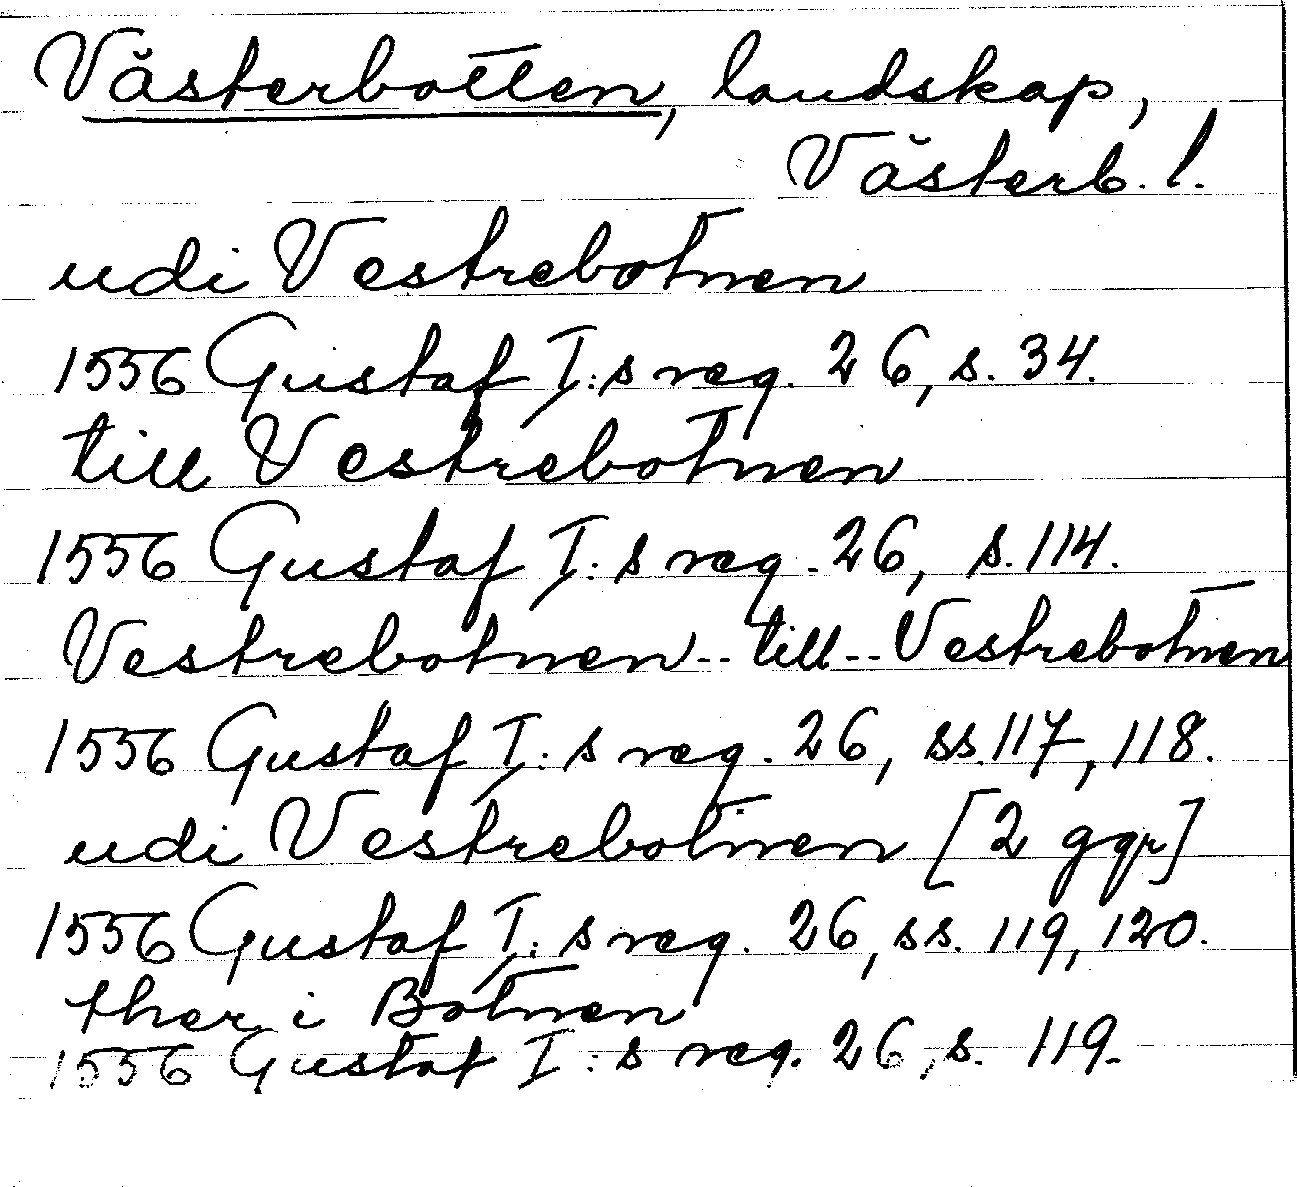 Västerbotten, landskap,
Västerb. l.
udi Vestrebotnen
1556 Gustaf I:s reg. 26, s. 34.
till Vestrebotnen
1556 Gustaf I:s reg. 26, s. 114.
Vestrebotnen -- till -- Vestrebotnen
1556 Gustaf I:s reg. 26, ss. 117, 118.
udi Vestrebotnen [2 ggr]
1556 Gustaf I:s reg. 26, ss. 119, 120.
ther i Botnen
1556 Gustaf I:s reg. 26, s. 119.